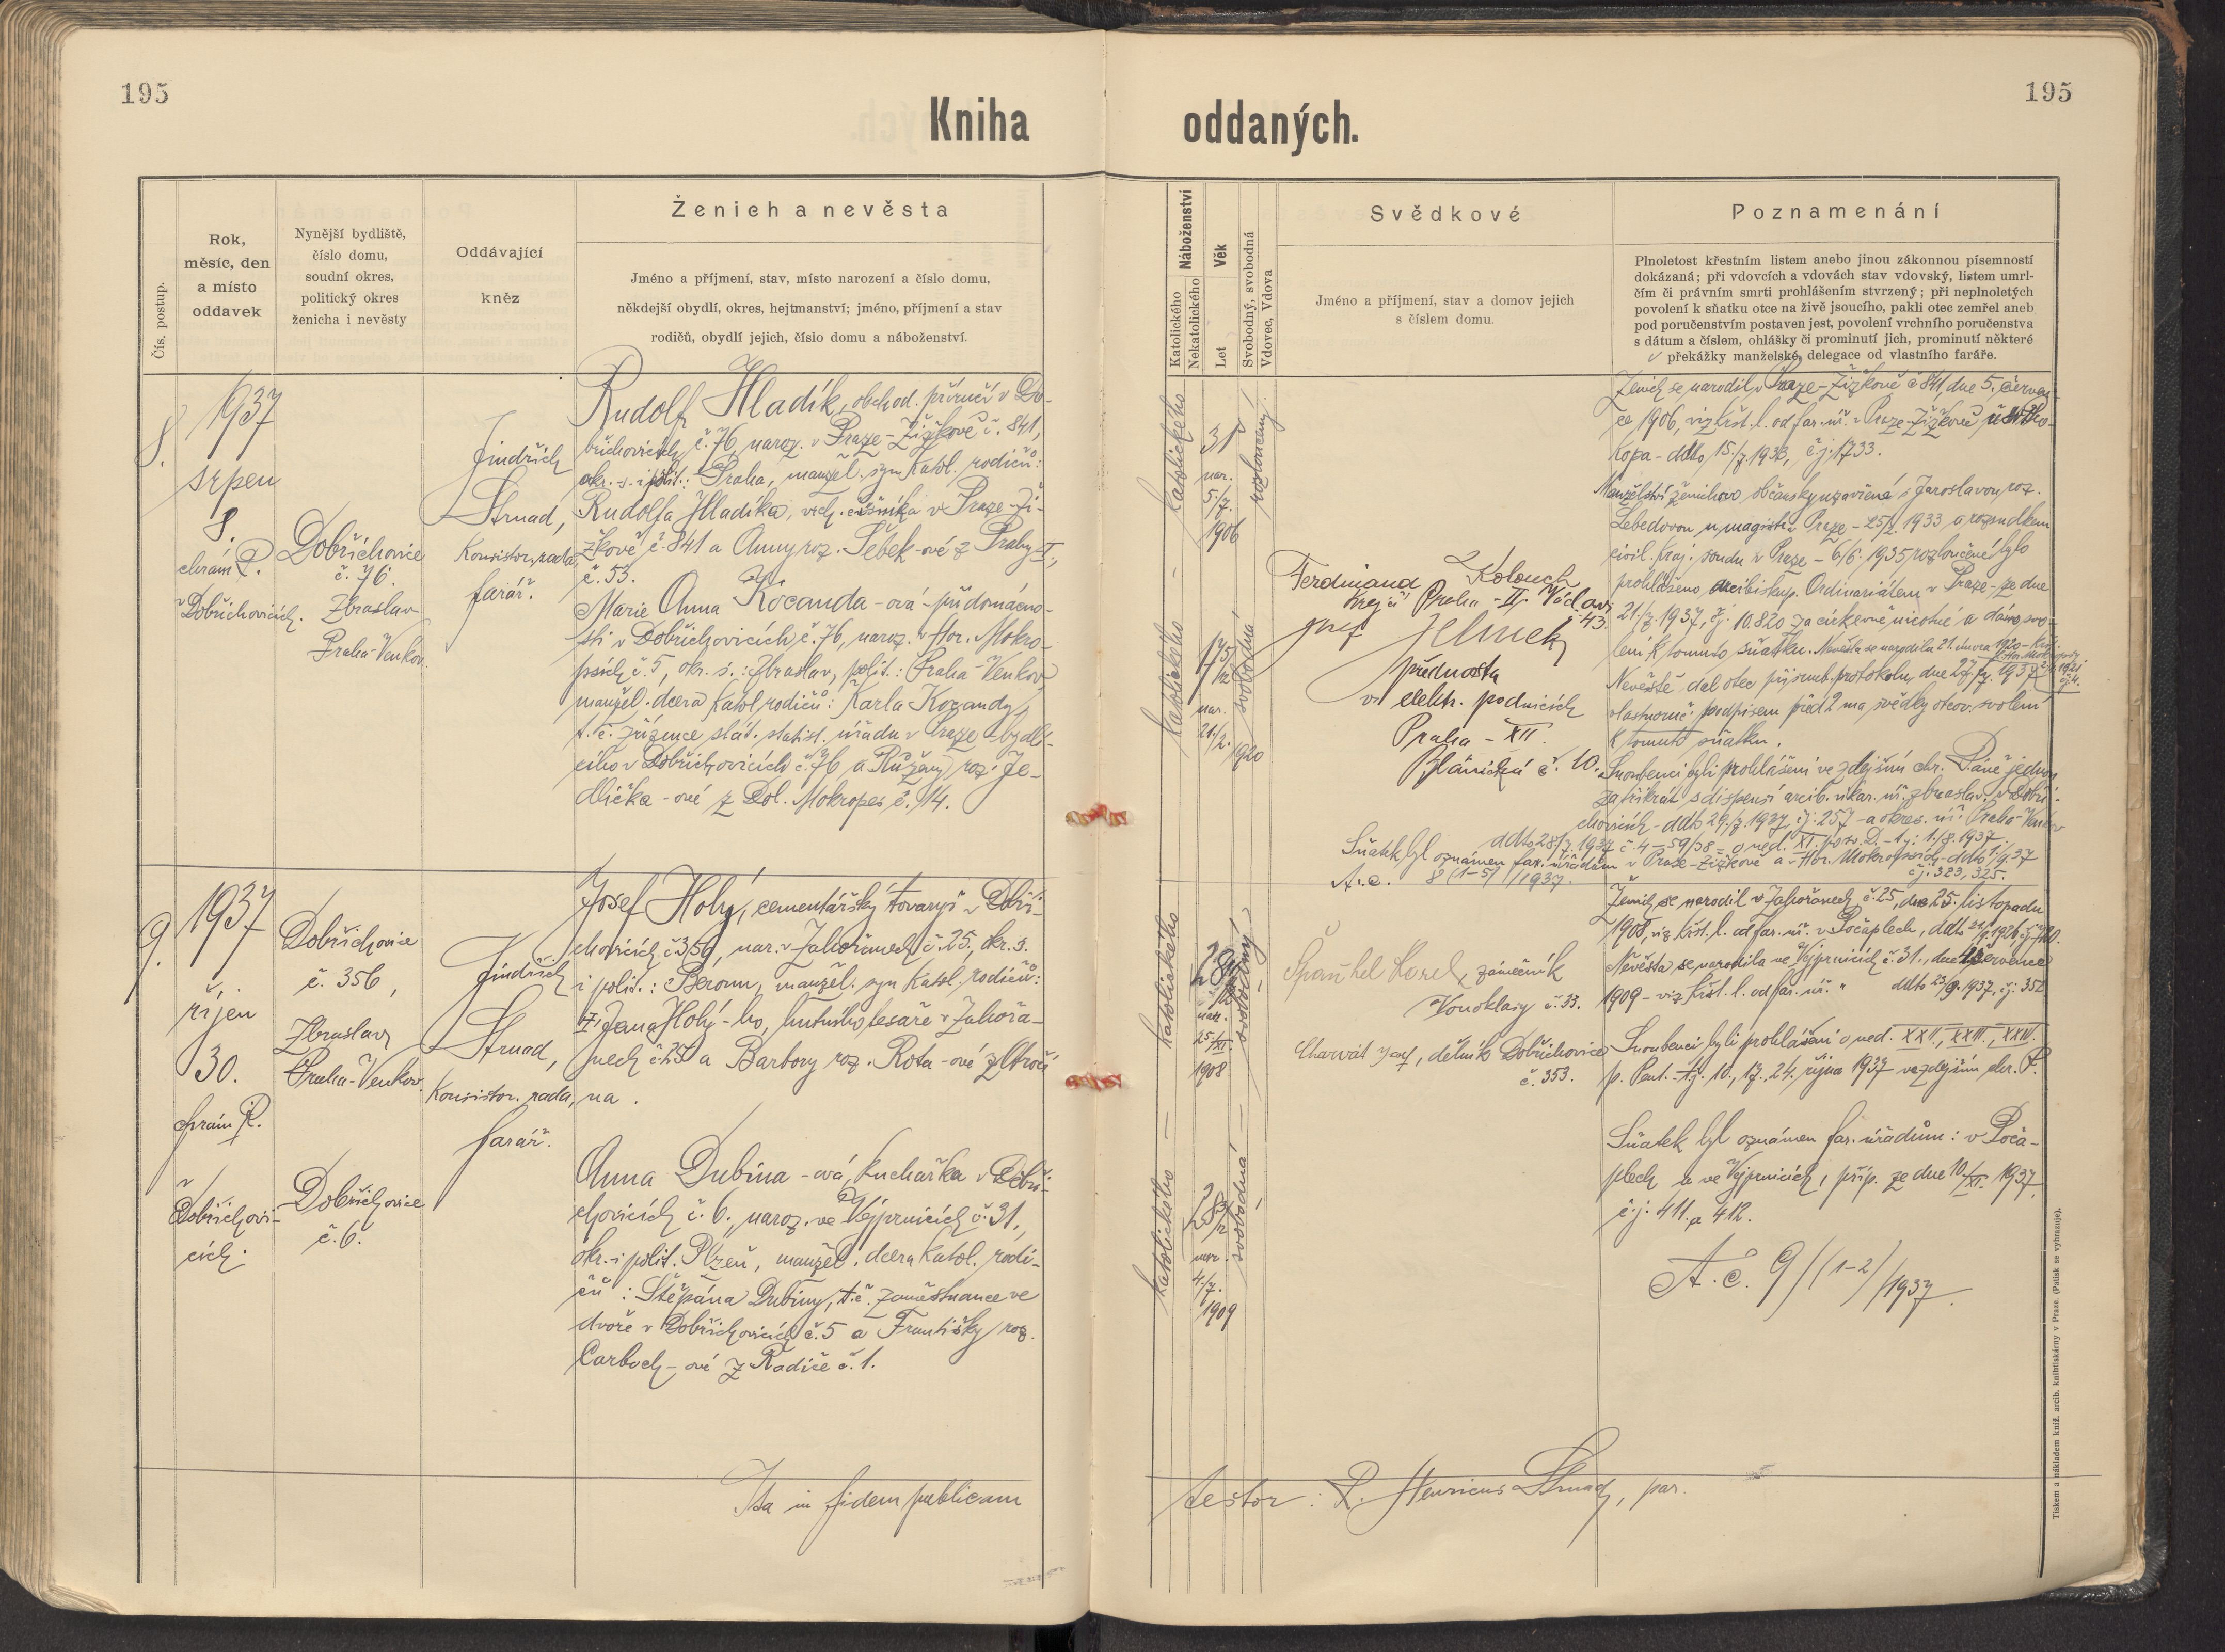 195
195
Kniha oddaných.
Čís. postup.
Rok,
měsíc, den
a místo
oddavek
Nynější bydliště,
číslo domu,
soudní okres,
politický okres
ženicha i nevěsty
Oddávající
kněz
Ženich a nevěsta
Jméno a příjmení, stav, místo narození a číslo domu,
někdejší obydlí, okres, hejtmanství; jméno, příjmení a stav
rodičů, obydlí jejich, číslo domu a náboženství.
Náboženství
Katolického
Nekatolického
Věk
Let
Svobodný, svobodná
Vdovec, Vdova
Svědkové
Jméno a příjmení, stav a domov jejich
s číslem domu.
Poznamenání
Plnoletost křestním listem anebo jinou zákonnou písemností
dokázaná; při vdovcích a vdovách stav vdovský, listem umrl-
čím či právním smrti prohlášením stvrzený; při neplnoletých
povolení k sňatku otce na živě jsoucího, pakli otec zemřel aneb
pod poručenstvím postaven jest, povolení vrchního poručenstva
s dátum a číslem, ohlášky či prominutí jich, prominutí některé
překážky manželské, delegace od vlastního faráře.
8.
1937
srpen
8.
chrám P.
v Dobřichovicích.
Dobřichovice
č. 76.
Zbraslav
Praha-Venkov.
Jindřich
Strnad,
Konsistor. rada,
farář.
Rudolf Hladík, obchod. příručí v Do-
břichovicích č. 76, naroz. v Praze-Žižkově č. 841,
okr. s. i polit.: Praha, manžel. syn katol. rodičů:
Rudolfa Hladíka, vrch. číšníka v Praze-Ži-
žkově č. 841 a Anny roz. Šebek-ové z Prahy II.,
č. 53.
Marie Anna Kocanda-ová - při domácno-
sti v Dobřichovicích č. 76, naroz. v Hor. Mokro-
psích č. 5, okr. s.: Zbraslav, polit.: Praha-Venkov,
manžel. dcera katol. rodičů: Karla Kocandy,
t. č. zřízence stát. statist. úřadu v Praze - bydlí-
cího v Dobřichovicích č. 76 a Růženy roz. Je-
dlička-ové z Dol. Mokropes č. 14.
katolického
31
nar.
5./7.
1906
rozloučený.
katolického
17 5/12
nar.
21./2.
1920
svobodná
Ferdinand Kolouch
krejčí Praha-II. Václavs
43.
Josef
přednosta
v elektr. podnicích
Praha - XII.
Blánická č. 10.
Ženich se narodil v Praze-Žižkově č. 841, dne 5. červen-
ce 1906, viz křst. l. od far. úř. v Praze-Žižkově u sv. Pro-
kopa - ddto 15./7. 1933, č. j. 1733.
Manželství ženichovo občansky uzavřené s Jaroslavou roz.
Lebedovou u magistr. v Praze - 25/2. 1933 a rozsudkem
civil. kraj. soudu v Praze - 6/6. 1935 rozloučené bylo
prohlášeno arcibiskup. Ordinariátem v Praze - ze dne
21/7. 1937, č. j. 10.820 za církevně nicotné a dáno svo-
lení k tomuto sňatku. Nevěsta se narodila 21. února 1920 -
Nevěstě dal otec přísemb. protokolu, dne 27/7. 1937
vlastnoruč. podpisem před 2 ma svědky otcov. svolení
k tomuto sňatku.
Snoubenci byli prohlášeni ve zdejším chr. Páně jednou
za třikrát s dispensí arcib. vikar. úř. zbraslav. v Dobři-
chovicích - ddto 29./7. 1937, č. j. 257 - a okres. úř. Praha-Venkov
ddto 28/7. 1937 č. 4-59/38 - o ned. XI. po sv. D. - t. j. 1./8. 1937.
Sňatek byl oznámen far. úřadům v Praze-Žižkově a v Hor. Mokropsích - ddto
č. j. 323, 325.
A. č. 8 (1-5) / 1937.
9.
1937
říjen
30.
chrám P.
v
Dobřichovi-
cích.
Dobřichovice
č. 356,
Zbraslav
Praha-Venkov.
Dobřichovice
č. 6.
Jindřich
Strnad,
Konsistor. rada,
farář.
Josef Holý, cementářský tovaryš v Dobři-
chovicích č. 356, nar. v Zahořanech č. 25, okr. s.
i polit.: Beroun, manžel. syn katol. rodičů:
† Jana Holý-ho, hutního tesaře v Zahořa-
nech č. 25 a Barbory roz. Rota-ové z Otroči-
na.
Anna Dubina-ová, kuchařka v Dobři-
chovicích č. 6., naroz. ve Vejprnicích č. 31.,
okr. i polit. Plzeň, manžel. dcera katol. rodi-
čů: Štěpána Dubiny, t. č. zaměstnance ve
dvoře v Dobřichovicích č. 5 a Františky roz.
Carboch-ové z Radiče č. 1.
katolického
28
nar.
25./XI.
1908
svobodný
katolického
28 3/12
nar.
4./7.
1909
svobodná
Španhel Karel, zámečník
Vonoklasy č. 33.
Charvát Josef, dělník Dobřichovice
č. 353.
Ženich se narodil v Zahořanech č. 25, dne 25. listopadu
1908, viz křst. l. od far. úř. v Počaplech, ddto
Nevěsta se narodila ve Vejprnicích č. 31., dne července
1909 - viz křst. l. od far. úř. " ddto 23/9. 1937, č. j. 352
Snoubenci byli prohlášeni o ned. XXII., XXIII., XXIV.
p. Pent. - t. j. 10., 17., 24. října 1937 ve zdejším chr. P.
Sňatek byl oznámen far. úřadům: v Poča-
plech a ve Vejprnicích, příp. ze dne 10/XI. 1937,
č. j. 411. a 412.
A. č. 9/(1-2)/1937.
Ita in fidem publicam
testor: P. Henricus Strnad, par.
Tiskem a nákladem kníž. arcib. knihtiskárny v Praze. (Patisk se vyhrazuje).